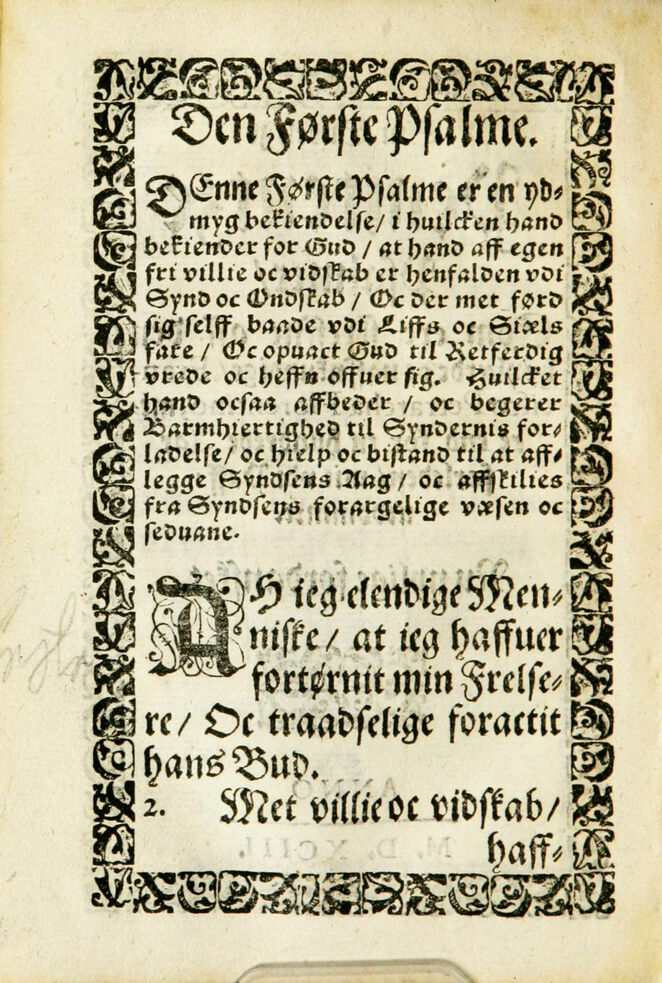 Den Første Psalme.
DEnne Første Psalme er en yd⸗
myg bekiendelse/ i huilcken hand
bekiender for Gud / at hand aff egen
fri villie oc vidskab er henfalden vdi
Synd oc Ondskab / Oc der met førd
sig selff baade vdi Liffs oc Siæls
fare / Oc opuact Gud til Retferdig
vrede oc heffn offuer sig. Huilcket
hand ocsaa affbeder / oc begerer
Barmhiertighed til Syndernis for⸗
ladelse/ oc hielp oc bistand til at aff⸗
legge Syndsens Aag / oc affskilies
fra Syndsens forargelige væsen oc
seduane.
AH ieg elendige Men⸗
niske / at ieg haffuer
fortørnit min Frelse⸗
re/ Oc traadselige foractit
hans Bud.
2. Met villie oc vidskab/
haff⸗
ANNO
M. D. XCIII.